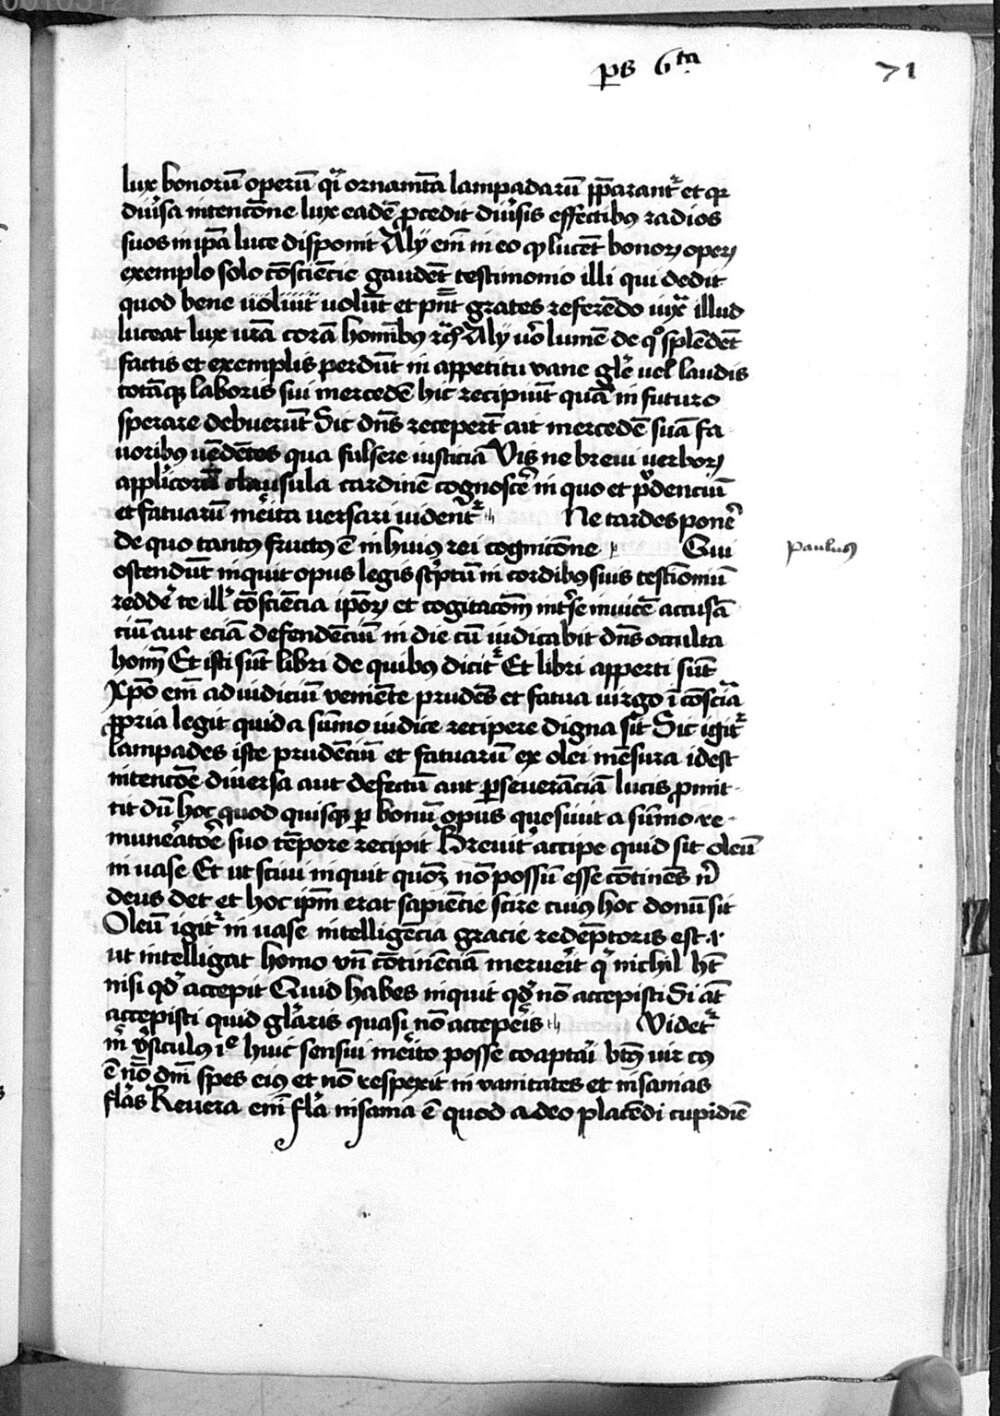 ps 6ta 71
lux bonorū operū qͥ ornamēta lampadarū p̄parantᷣ et qꝛ
diūsa intencōne lux eadē ꝓcedit diūsis effectibꝫ radios
suos in ipā luce disponit Alij em̄ in eo qꝫ lucēt bonoꝝ opeꝝ
exemplo solo cōsciencie gaudēt testimonio illi qui dedit
quod bene uoliuīt uolūt et pn̄t grates referēdo iuxͣ illud
luceat lux vr̄a corā homībꝫ Alij uͦo lumē de qͦ splēdēt
factis et exemplis perdūt in appetitu vane gl̄e uel laudis
totāqꝫ laboris sui mercedē hic recipiūt quā in futuro
sperare debuerūt Sic dn̄s receperūt ait mercedē suā fa
uoribꝫ uēdētes qua fulsere iusticiā Vis ne breui uerboꝝ
clausula cardinē cognoscē in quo et pͣdenciū
et fatuarū mēita uersari uidentᷣ Ne tardes ponē
de quo tantꝫ fructꝫ ē in huiꝫ rei cognicōne Qui
Paulus
ostendūt inquit opus legis scͥptū in cordibꝫ suis testīoniū
reddē te illᷣ cōsciencia ipōꝝ et cogitacom̄ intͬse inuicē accusā
ciū aut eciā defendēciū in die cū iudicabit dn̄s occulta
hom̄ Et isti sūt libri de quibꝫ dicitᷣ Et libri apperti sūt
Xp̄o em̄ ad iudiciū veniēte prudēs et fatua uirgo ī cōsciā
ꝓpria legit quid a sūmo iudice recipere digna sit Sic igitᷣ
lampades iste prudēciū et fatuarū ex olei mēsura idest
intencōe diuersa aut defectū aut ꝑseuerāciā lucis ꝓmit
tit dū hoc quod quisqꝫ ꝑ bonū opus quesiuit a sūmo re
munēatōe suo tēpore recipit Breuitᷣ accipe quid sit oleū
in uase Et ut sciui inquit quōꝫ nō possū esse cōtinēs nͥ
deus det et hoc ipm̄ erat sapiēcie scire cuiꝫ hoc donū sit
Oleū igitᷣ in uase intelligēcia gracie redēptoris est .i.
ut intelligat homo vn̄ cōtinēciā meruēit qͥ nichil hꝫt
nisi qd̄ accepit Quid habes inquit qd̄ nō accepisti Si āt
accepisti quid glͦaris quasi nō accepēis Videtᷣ
mͥ v̄siculꝫ huic sensui mēito posse coaptaͥ btꝫ uir cꝫ
ē nō dm̄ spes eiꝫ et nō respexit in vanitates et insanias
flas̄ Reuera em̄ fla̅ insania ē quod a deo placēdi cupidiē